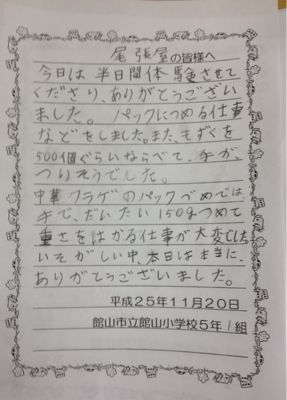 尾張屋の皆様へ
今日は半日間体験させて
くださり、ありがとうござい
ました。パックにつめる仕事
などをしました。また、もずくを
500個ぐらいならべて、手が、
つりそうでした。
中華クラゲのパックづめでは、
手で、だいたい150gつめて
重さをはかる仕事が大変でした
いそがしい中、本日は本当に、
ありがとうございました。
平成25年11月20日
館山市立館山小学校5年1組